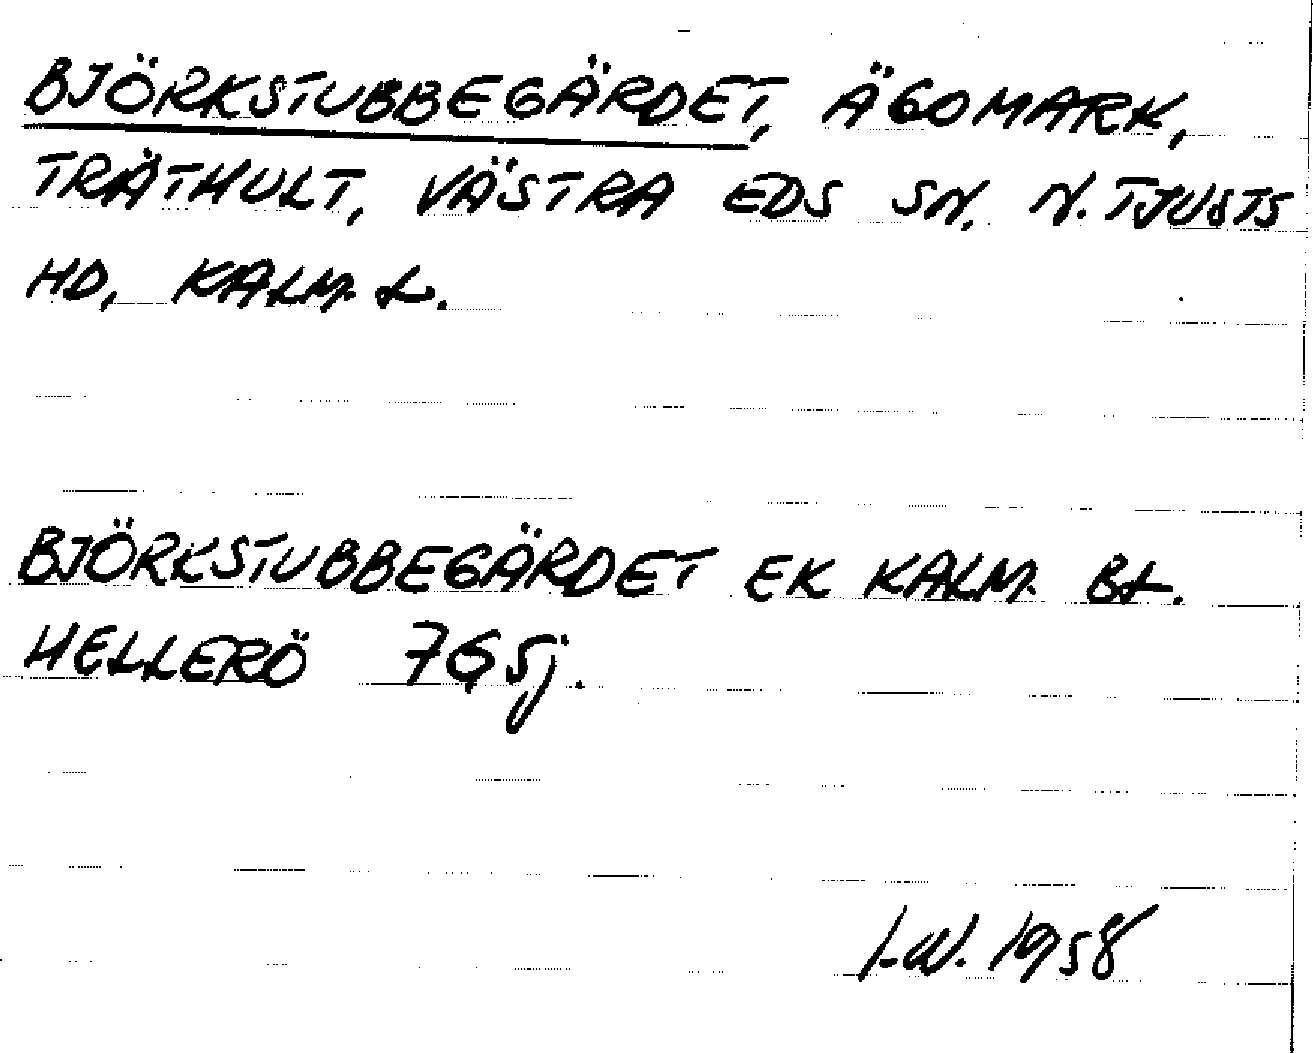 BJÖRKSTUBBEGÄRDET, ÄGOMARK,
TRÄTHULT, VÄSTRA EDS SN, N. TJUSTS
HD, KALM. L.
BJÖRKSTUBBEGÄRDET EK KALM. BL.
HELLERÖ 7G5j.
I.W. 1958